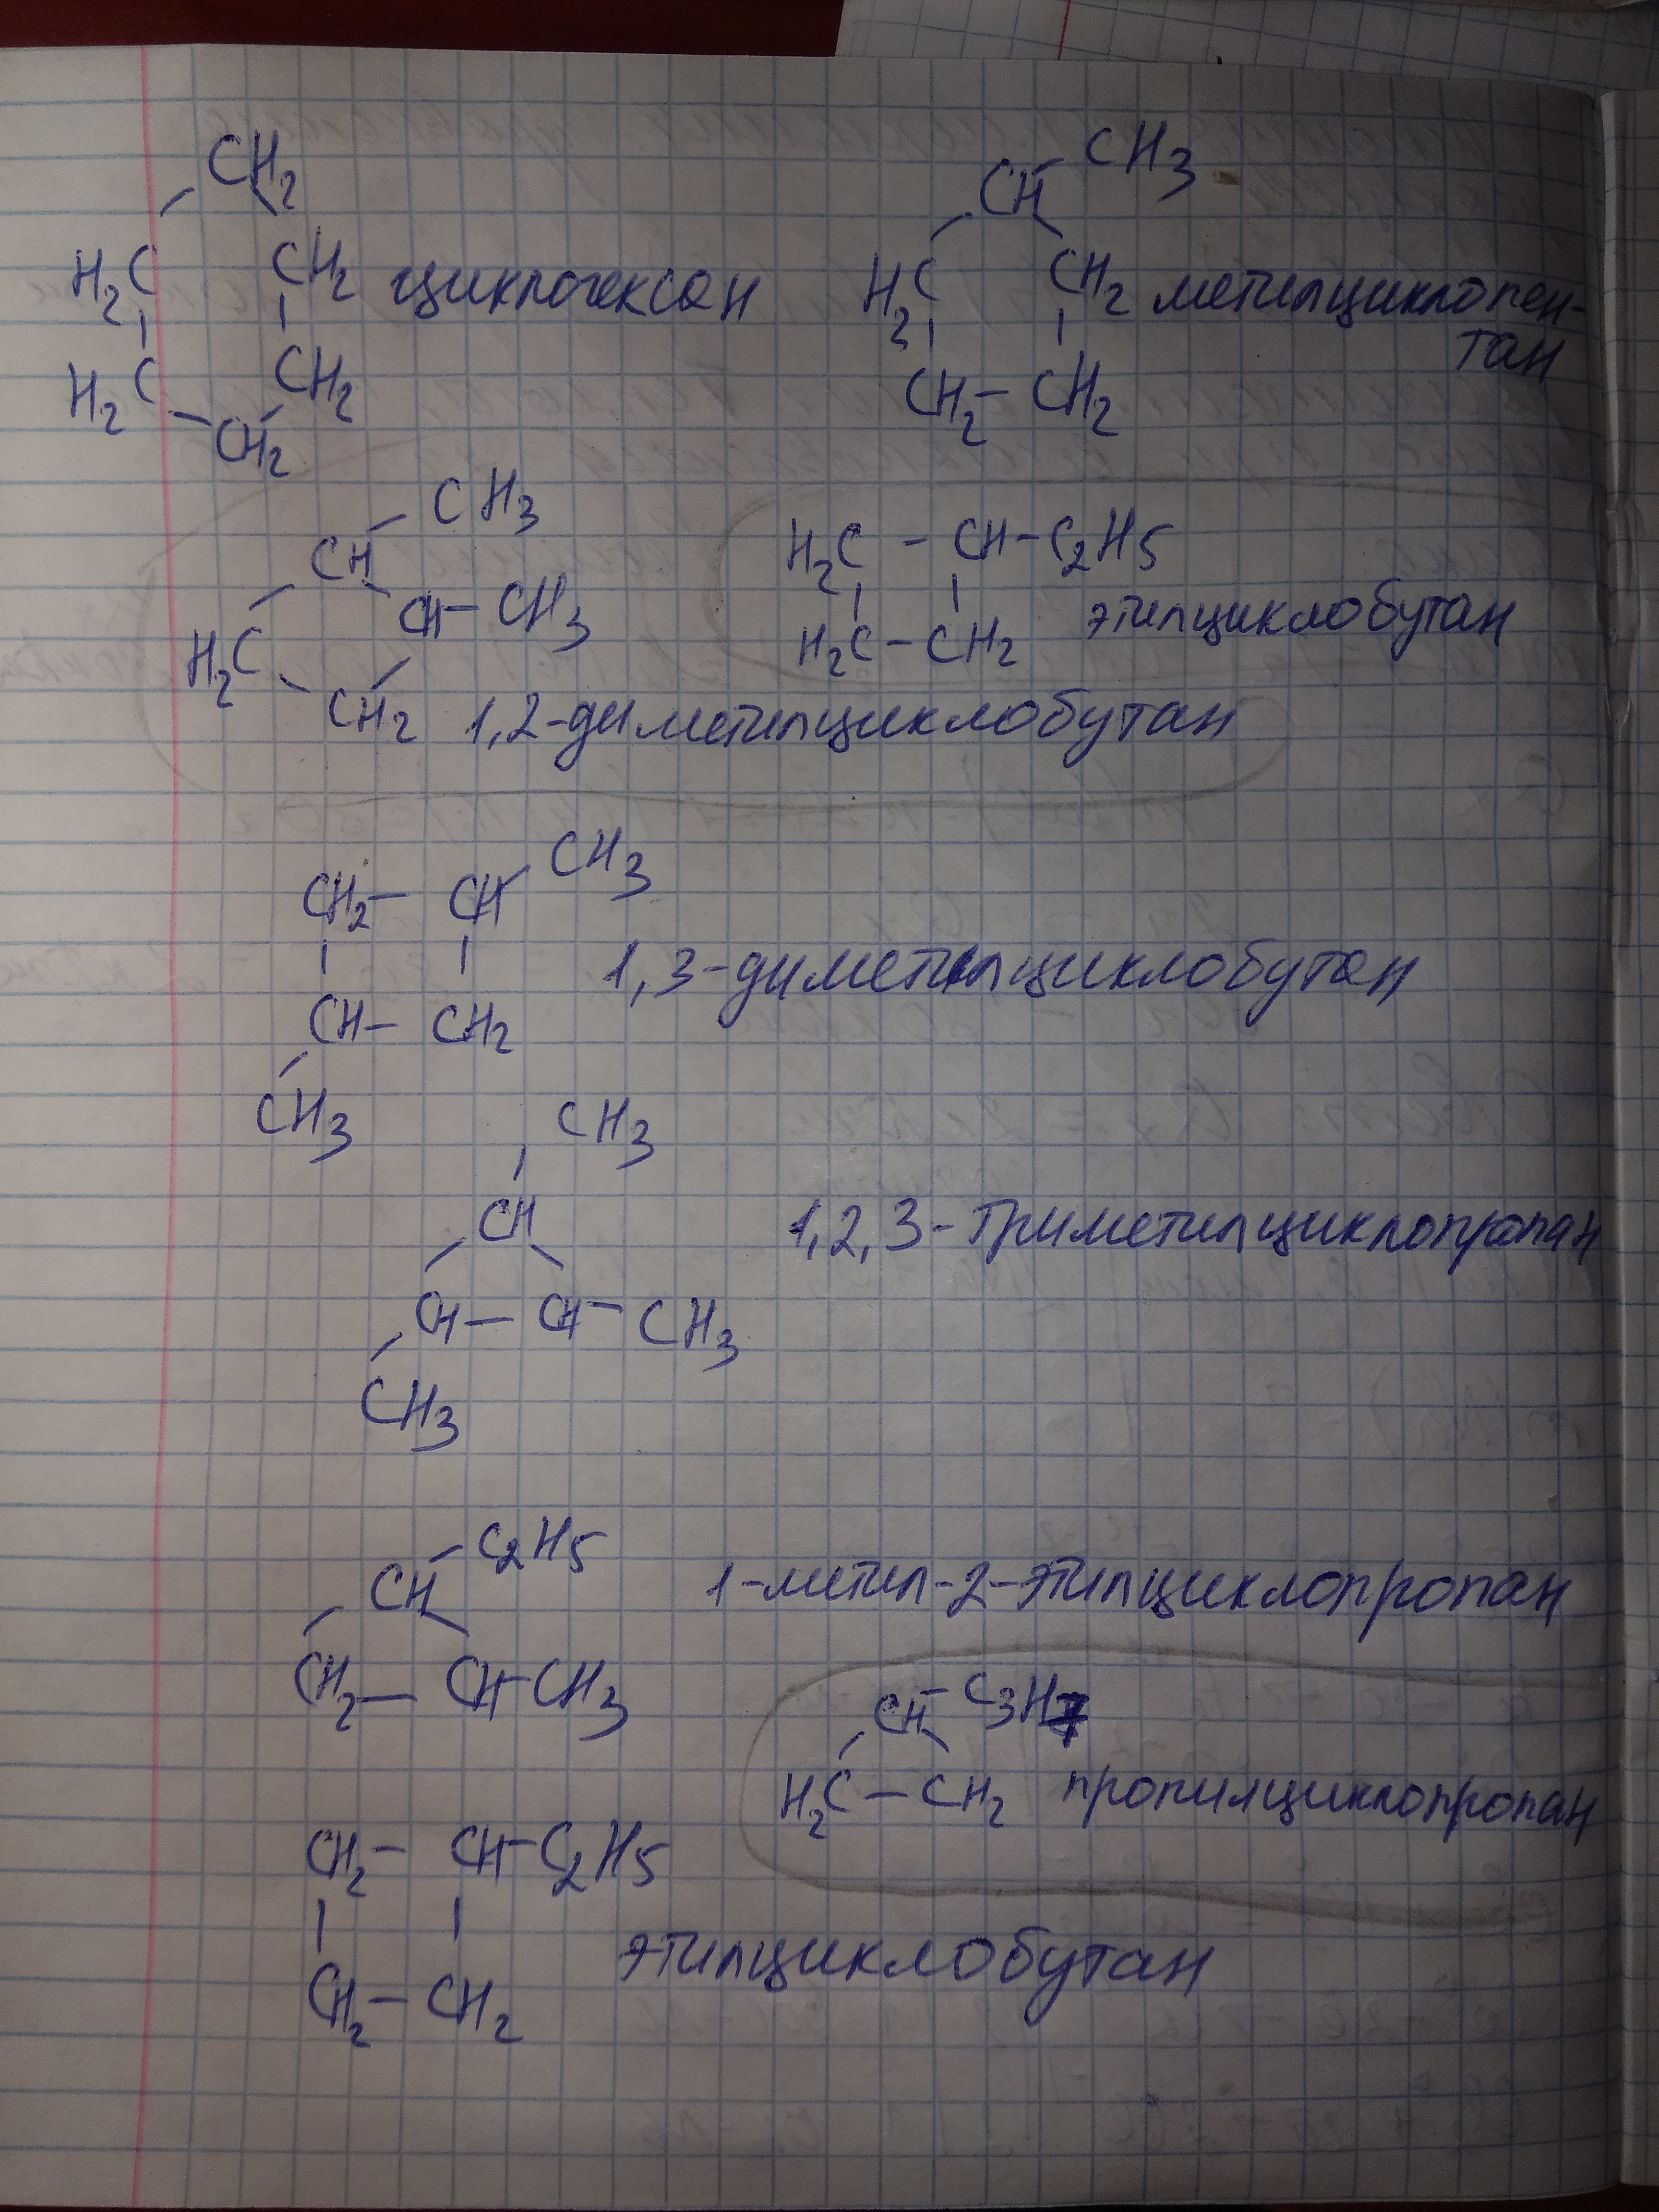 CH2
H2C CH2 циклогексан
H2C CH2
CH2
CH - CH3
H2C CH2 метилциклопен-
тан
CH2 - CH2
CH - CH3
H2C CH - CH3
CH2 1,2-диметилциклобутан
H2C - CH - C2H5
H2C - CH2 этилциклобутан
CH2 - CH - CH3
1,3-диметилциклобутан
CH - CH2
CH3
CH3
CH 1,2,3-триметилциклопропан
CH - CH - CH3
CH3
CH - C2H5
1-метил-2-этилциклопропан
CH2 - CH - CH3
CH - C3H7
H2C - CH2 пропилциклопропан
CH2 - CH - C2H5
этилциклобутан
CH2 - CH2